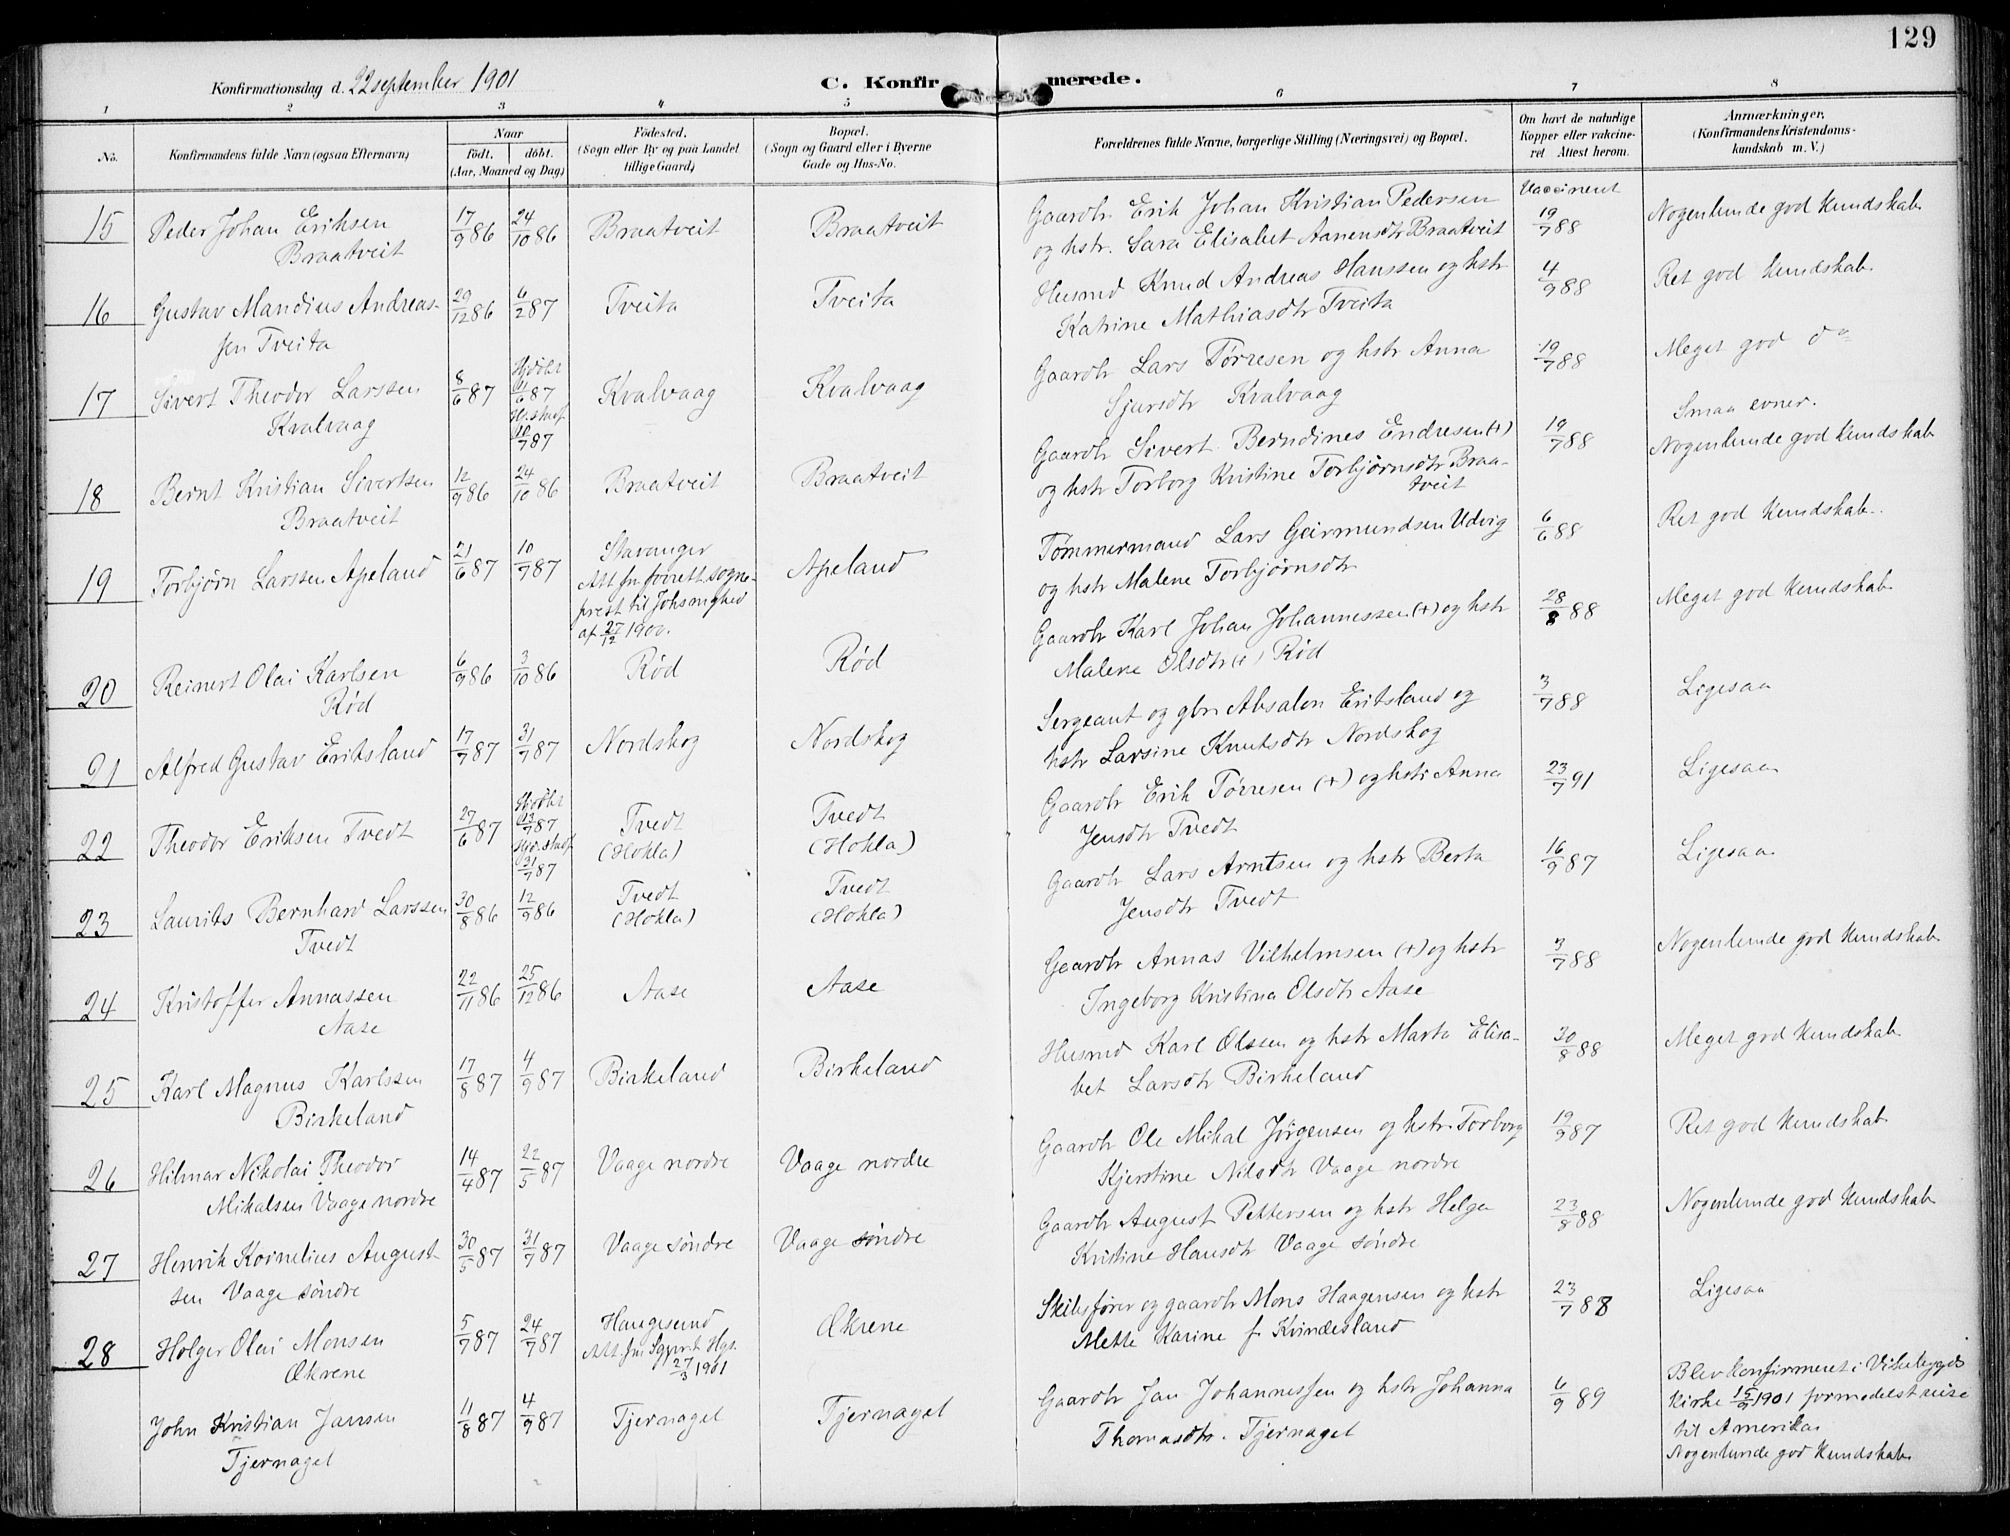 129
Konfirmationsdag d. 22 september 1901
C. Konfirmerede.
1 2 3 4 5 6 7 8
No. Konfirmandens fulde Navn (ogsaa Efternavn) Naar født, døbt. (Aar, Moaned og Dag) Fødested. (Sogn eller By og paa Landet tillige Gaard) Bopæl. (Sogn og Gaard eller i Byerne Gade og Hus-No. Forældrenes fulde Navne, borgerlige Stilling (Næringsvei) og Bopæl. Om havt de naturlige Kopper eller vakcineret Attest herom. Anmærkninger, (Konfirmandens Kristendomskundskab m. V.)
15 Peder Johan Eriksen 17/9 86 24/10 86 Braatveit Braatveit Gaardbr Erik Johan Kristian Pedersen Vaccineret 19/7 88 Nogenlunde god kundskab
Braatveit og hstr. Sara Elisabet Aanensdtr Braatveit
16 Gustav Mandius Andreas- 29/12 86 6/2 87 Tveita Tveita Husmd Knud Andreas Hanssen og hstr 4/9 88 Ret god kundskab
sen Tveita Katrine Mathiasdtr Tveita
17 Sivert Theodor Larssen 8/6 87 Hjdøbt 11/6 87 Kvalvaag Kvalvaag Gaardbr Lars Tørresen og hstr Anna 19/7 88 Meget god do
Kvalvaag 10/7 87 Sjursdtr Kvalvaag
18 Bernt Kristian Sivertsen 12/9 86 24/10 86 Braatveit Braatveit Gaardbr Sivert Berndines Endresen (+) 19/7 88 Smaa evner.
Braatveit og hstr Torborg Kristine Torbjørnsdtr Braa- Nogenlunde god kundskab
tveit
19 Torbjørn Larssen Apeland 21/6 87 10/7 87 Stavanger Apeland Tømmermand Lars Geirmundsen Udvig 6/6 88 Ret god kundskab.
Att fr forrett. sogne- og hstr Malene Torbjørnsdtr
prest til
af 27/12 1900.
20 Reinert Olai Karlsen 6/9 86 3/10 86 Rød Rød Gaardbr Karl Johan Johannessen (+) og hstr 28/8 88 Meget god kundskab
Rød Malene Olsdtr (+) Rød
21 Alfred Gustav Eritsland 17/7 87 31/7 87 Nordskog Nordskog Sergeant og gbr. Absalon Eritsland og 3/7 88 Ligesaa
hstr Larsine Knutsdtr Nordskog
22 Theodor Eriksen Tvedt 27/6 87 Hjdøbt 13/7 87 Tvedt Tvedt Gaardbr Erik Tørresen (+) og hstr Anna 23/7 91 Ligesaa
31/7 87 (Hokla) (Hokla) Jensdtr Tvedt
23 Laurits Bernhard Larssen 30/8 86 12/9 86 Tvedt Tvedt Gaardbr Lars Arntsen og hstr Berta 16/9 87 Ligesaa
Tvedt (Hokla) (Hokla) Jensdtr Tvedt
24 Kristoffer Annassen 22/11 86 25/12 86 Aase Aase Gaardbr Annas Vilhelmsen (+) og hstr 3/7 88 Nogenlunde god kundskab
Aase Ingeborg Kristina Olsdtr Aase
25 Karl Magnus Karlssen 17/8 87 4/9 87 Birkeland Birkeland Husmd Karl Olssen og hstr Marta Elisa- 30/8 88 Meget god kundskab
Birkeland bet Larsdtr Birkeland
26 Hilmar Nikolai Theodor 14/4 87 22/5 87 Vaage nordre Vaage nordre Gaardbr Ole Mikal Jørgensen og hstr Torborg 19/9 87 Ret god kundskab
Mikalsen Vaage nordre Kjerstine Nilsdtr Vaage nordre
27 Henrik Kornelius August- 30/5 87 31/7 87 Vaage søndre Vaage søndre Gaardbr August Pettersen og hstr Helga 23/8 88 Nogenlunde god kundskab
sen Vaage søndre Kristine Hansdtr Vaage søndre
28 Holger Olai Monsen 5/7 87 24/7 87 Haugesund Økrene Skibsfører og gaardbr Mons Haagensen og hstr 23/7 88 Ligesaa
Økrene Att fra Sgpr. i Hgs. Mette Karine f. Kvindesland
27/3 1901
John Kristian Jansen 11/8 87 4/9 87 Tjernagel Tjernagel Gaardbr Jan Johannessen og hstr Johanna 6/9 89 Blev konfirmeret i Vikebygds
Tjernagel Thomasdtr. Tjernagel kirke 15/9 1901 formedelst reise
til Amerika.
Nogenlunde god kundskab